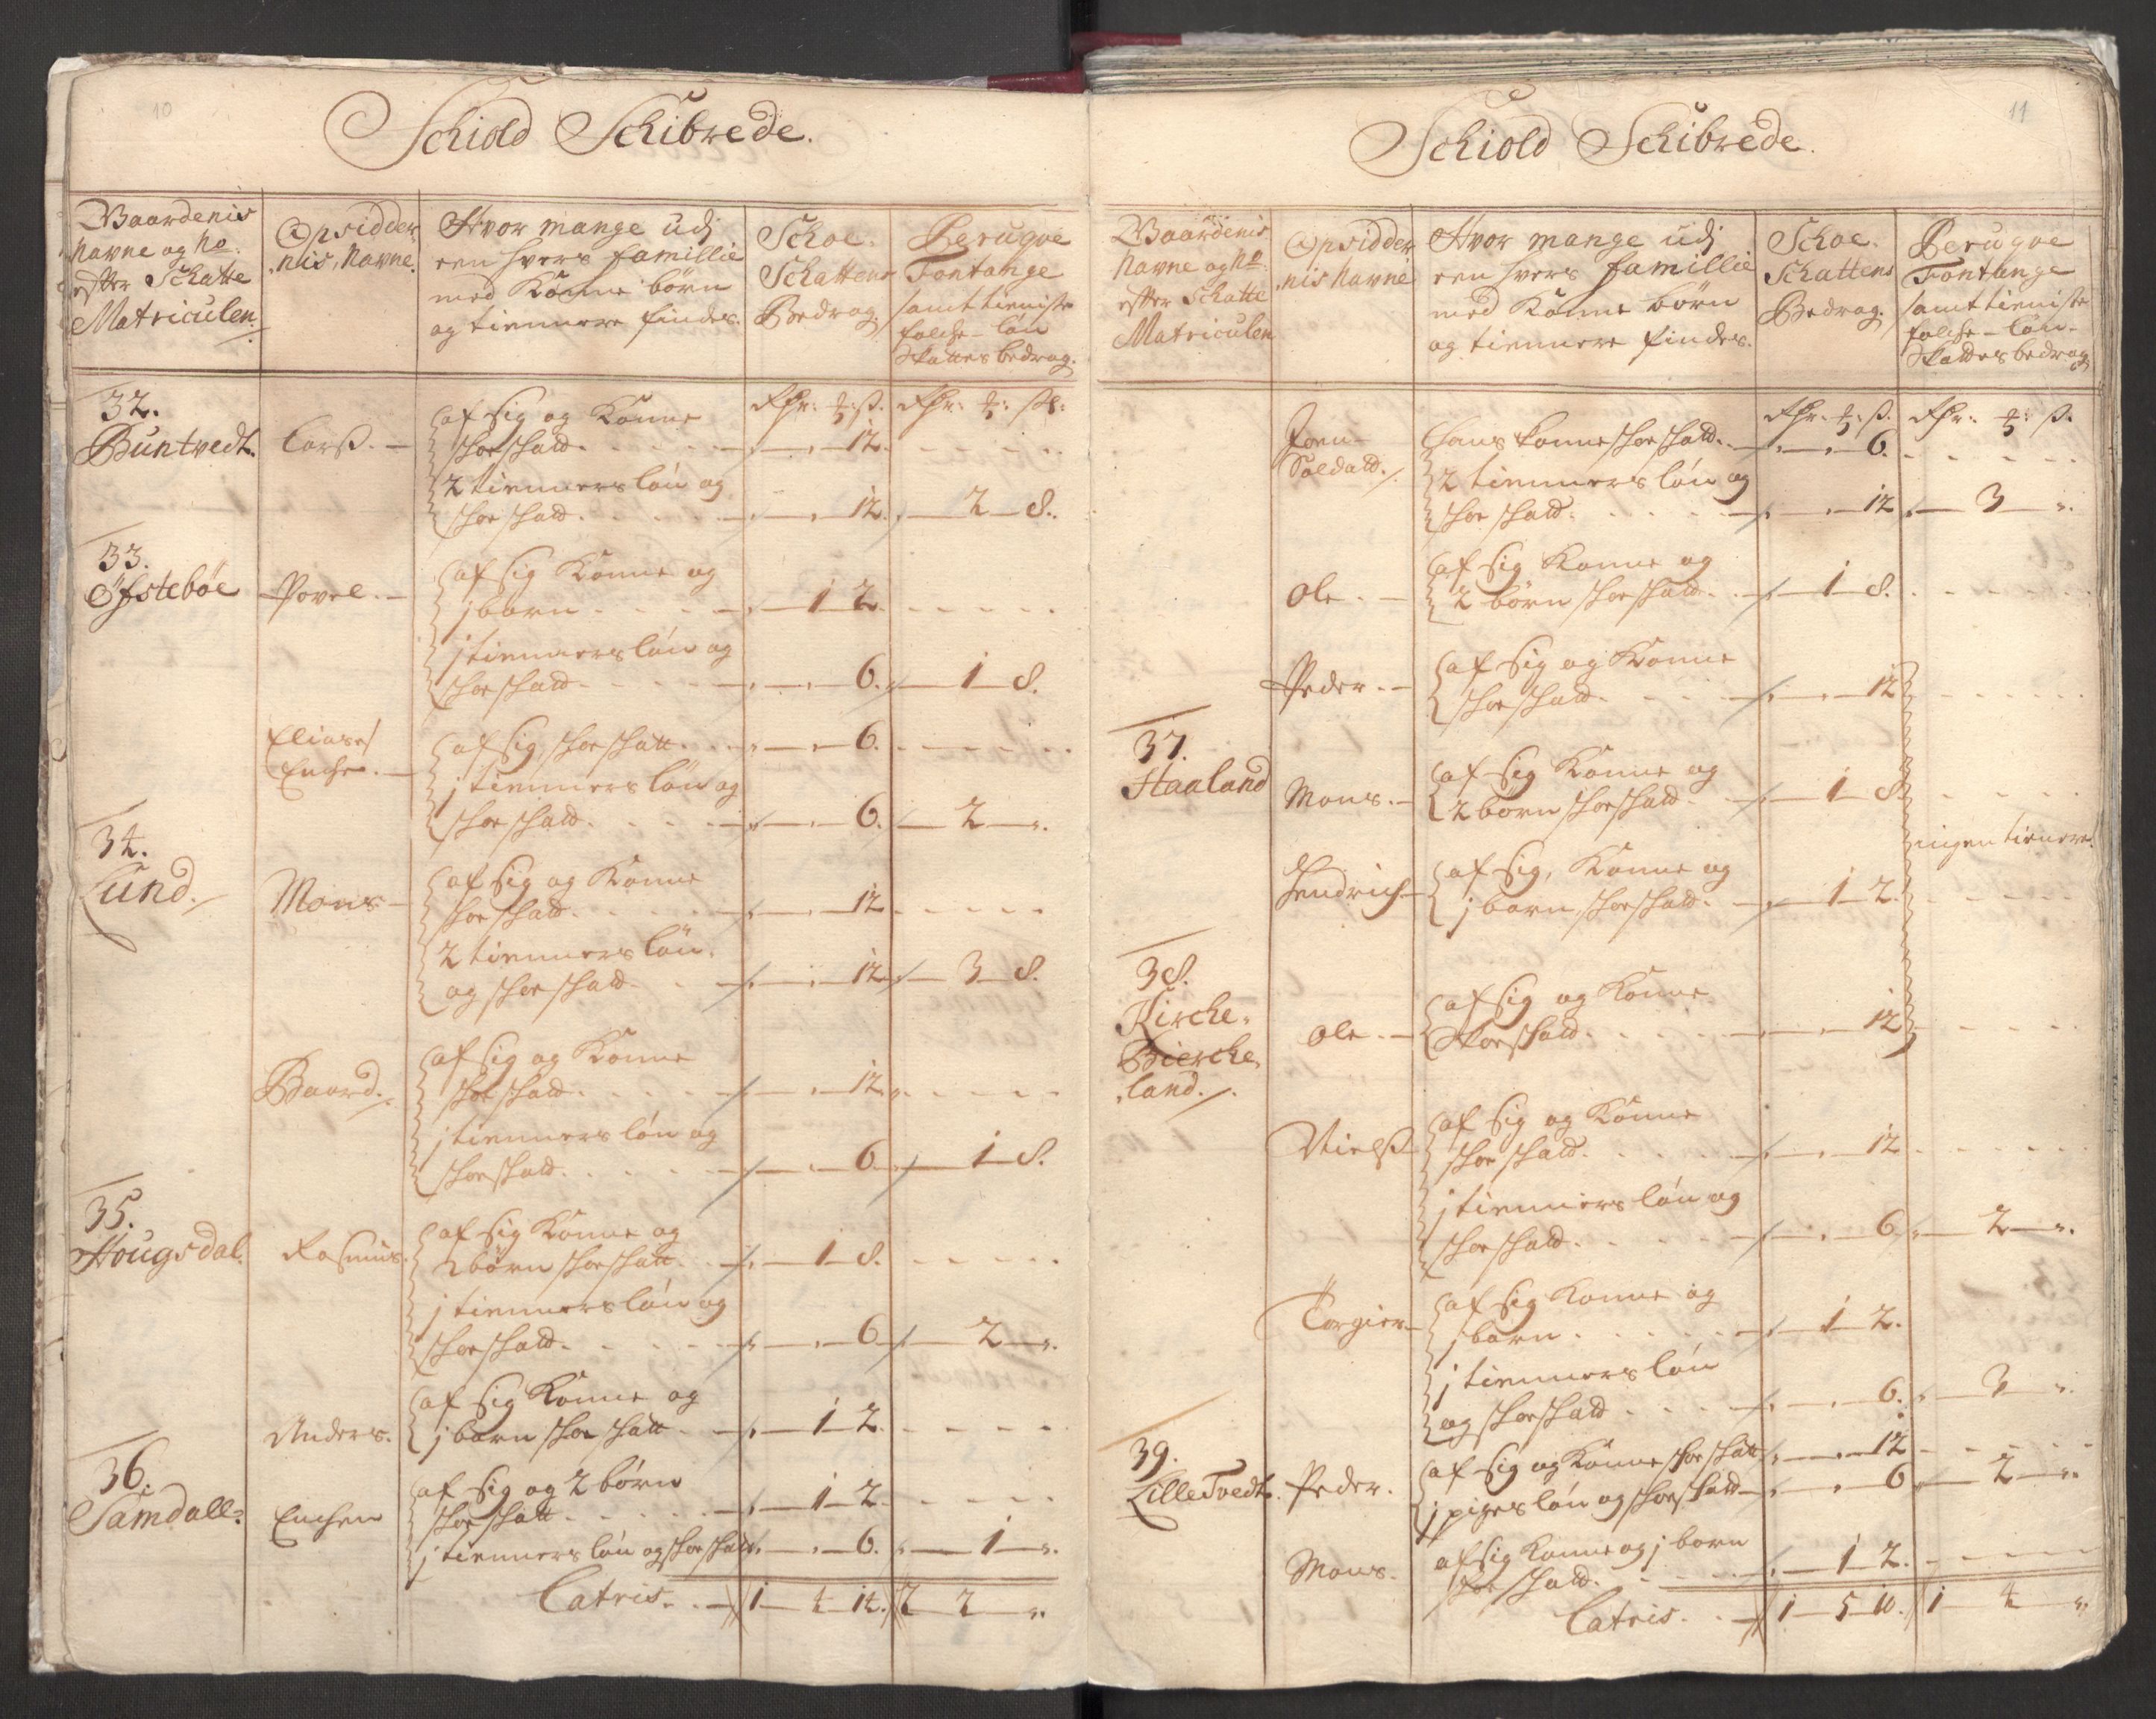 10
Schiold Schibrede.
Gaardenis
Navne og No.
effter Schatte
Matriculen
Opsidder
nis, Navne.
Hvor mange udj
een hvers famillie
med Konne börn
og tiennere findes.
Schoe
Schattens
Bedrag.
Peruqve
Fontange
samt tieniste
folche-lön
Skattes bedrag.
Rdr: ꝣ: ß.
Rdr: ꝣ: ß:
32.
Buntvedt.
Larß.
af sig og Konne
schoeschatt.
12.
2 tienners lön og
schoe schatt.
12.
2 8.
33.
Öfstebøe
Povel.
af sig Konne og
j barn
1 2.
j tienners lön og
schoeschatt
6.
1 8.
Eliases
Enche.
af sig schoeschatt.
6.
j tienners lön og
schoe schatt.
6.
2
34.
Lund.
Mons
af sig og Konne
schoeschatt.
12
2 tienners lön.
og schoeschatt
12.
3 8.
Baard.
af sig og Konne
schoeschatt.
12.
j tienners lön og
schoeschatt.
6
1 8.
35.
Hougsdal.
Rasmus.
af sig Konne og
2 börn schoeschatt.
1 8.
j tienners lön og
schoeschatt.
6
2
Anders.
af sig Konne og
j barn schoeschatt
1 2.
36.
Samdall.
Enchen
af sig og 2 börn
schoeschatt.
1 2.
j tienners lön og schoeschatt
6.
1
Latris.
1 4 14.
2 2
11
Schiold Schibrede.
Gaardenis
Navne og No.
effter Schatte
Matriculen
Opsidder
nis Navne
Hvor mange udj
een hvers famillie
med Konne börn
og tiennere findes.
Schoe
Schattens
Bedrag.
Peruqve
Fontange
samt tieniste
folche-lön
Skattes bedrag
Rdr: ꝣ: ß.
Rdr: ꝣ: ß.
Joen
Soldatt.
hans konne schoeschatt.
6.
2 tienners lön og
schoe schatt.
12
3
Ole.
af sig Konne og
2 börn schoeschatt.
1 8.
Peder.
af sig og Konne
schoeschatt.
12
37.
Haaland
Mons.
af sig Konne og
2 börn schoeschatt.
1 8
ingen tienere.
Hendrich
af sig, Konne og
j barn schoeschatt.
1 2.
38.
Kirche
Bierche
land.
Ole.
af sig og Konne
Skoeschatt.
12
Nielß
af sig og Konne
schoe schatt.
12
j tienners lön og
schoeschatt.
6
2
Torgier
af sig Konne og
j barn
1 2.
j tienners lön
og schoeschatt
6.
3
39.
Lilletvedt.
Peder.
af sig og Konne schoeschatt
12
j piges lön og schoeschatt
6
2
Mons.
af sig Konne og j barn
schoe schatt.
1 2.
Latris.
1 5 10.
1 4